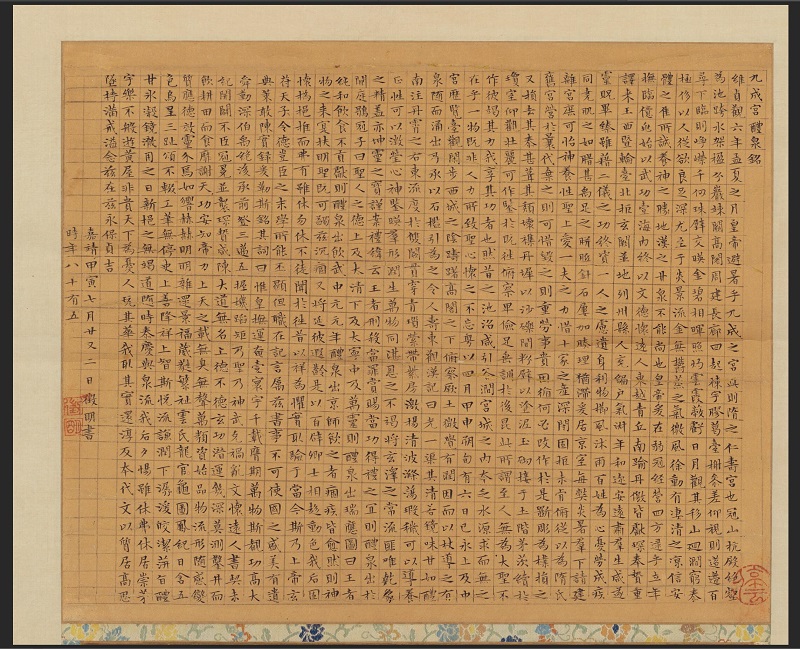 九成宮醴泉銘
維貞觀六年孟夏之月皇帝避暑乎九成之宮此則隋之仁壽宮也冠山抗殿絕壑
為池跨水架楹分巖竦闕高閣周建長廊四起棟宇膠葛臺榭參差仰視則迢遞百
尋下臨則崢嶸千仞珠璧交暎金碧相暉照灼雲霞蔽虧日月觀其移山迴澗窮泰
極侈以人從欲良足深尤至于炎景流金無鬱蒸之氣微風徐動有淒清之涼信安
體之佳所誠養神之勝地漢之甘泉不能尚也皇帝爰在弱冠經營四方逮乎立年
撫臨億兆始以武功壹海內終以文德懷遠人東越青丘南踰丹徼皆獻琛奉贄重
譯來王西暨輪臺北拒玄闕並地列州縣人充編戶氣淑年和迩安遠肅群生咸遂
靈貺畢臻雖藉二儀之功終資一人之慮遺身利物櫛風沐雨百姓為心憂勞成疾
同堯肌之如腊甚禹足之胼胝針石屢加腠理猶滯爰居京室每弊炎暑羣下請建
離宮庶可怡神養性聖上愛一夫之力惜十家之產深閉固拒未肯俯從以為隋氏
舊宮營於曩代棄之則可惜毀之則重勞事貴因循何必改作於是斲彫為樸損之
又損去其泰甚葺其頹壞雜丹墀以沙礫間粉壁以塗泥玉砌接于土階茅茨續於
瓊室仰觀壯麗可作鑒於既往俯察卑儉足垂訓於後昆此所謂至人無為大聖不
作彼竭其力我享其功者也然昔之池沼咸引谷澗宮城之內本乏水源求而無之
在乎一物既非人力所致聖心懷之不忘粵以四月甲申朔旬有六日己亥上及中
宮歷覽臺觀閑步西城之陰躊躇高閣之下俯察厥土微覺有潤因而以杖導之有
泉隨而涌出乃承以石檻引為之令人壽東觀漢記曰光一渠其清若鏡味甘如醴
南注丹霄之右東流度於雙闕貫穿青瑣縈帶紫房激揚清波滌蕩瑕穢可以導養
正性可以澂瑩心神鑒暎群形潤生萬物同湛恩之不竭將玄澤之常流匪唯乾象
之精蓋亦坤靈之寶謹案禮緯云王者刑殺當罪賞錫當功得禮之宜則醴泉出於
闕庭鶡冠子曰聖人之德上及太清下及太寧中及萬靈則醴泉出瑞應圖曰王者
純和飲食不貢獻則醴泉出飲武中元元年醴泉出京師飲之者痼疾皆愈然則神
物之來寔扶明聖既可蠲茲沉痼又將延彼遐齡是以百辟卿士相趨動色我后固
懷撝挹推而弗有雖休勿休不徒聞於往昔以祥為懼實取驗于當今斯乃上帝玄
符天子令德豈臣之末學所能丕顯但職在記言屬茲書事不可使國之盛美有遺
典策敢陳實錄爰勒斯銘其詞曰惟皇撫運奄壹寰宇千載膺期萬物斯覩功高大
舜勤深伯禹絕後承前登三邁五握機蹈矩乃聖乃神武克禍亂文懷遠人書契未
紀開闢不臣冠冕並襲琛贄咸陳大道無名上德不德玄功潛運幾深莫測鑿井而
飲耕田而食靡謝天功安知帝力上天之載無臭無聲萬類資始品物流形隨感變
質應德效靈介焉如響赫赫明明雜遝景福葳蕤繁祉雲氏龍官龜圖鳳紀日含五
色烏呈三趾頌不輟工筆無停史上善降祥上智斯悅流謙潤下潺湲皎潔萍旨醴
甘冰凝鏡澈用之日新挹之無竭道隨時泰慶與泉流我后夕惕雖休弗休居崇茅
宇樂不般遊黃屋非貴天下為憂人玩其華我取其實還淳反本代文以質居高思
墜持滿戒溢念茲在茲永保貞吉
嘉靖甲寅七月廿又二日徵明書
時年八十有五